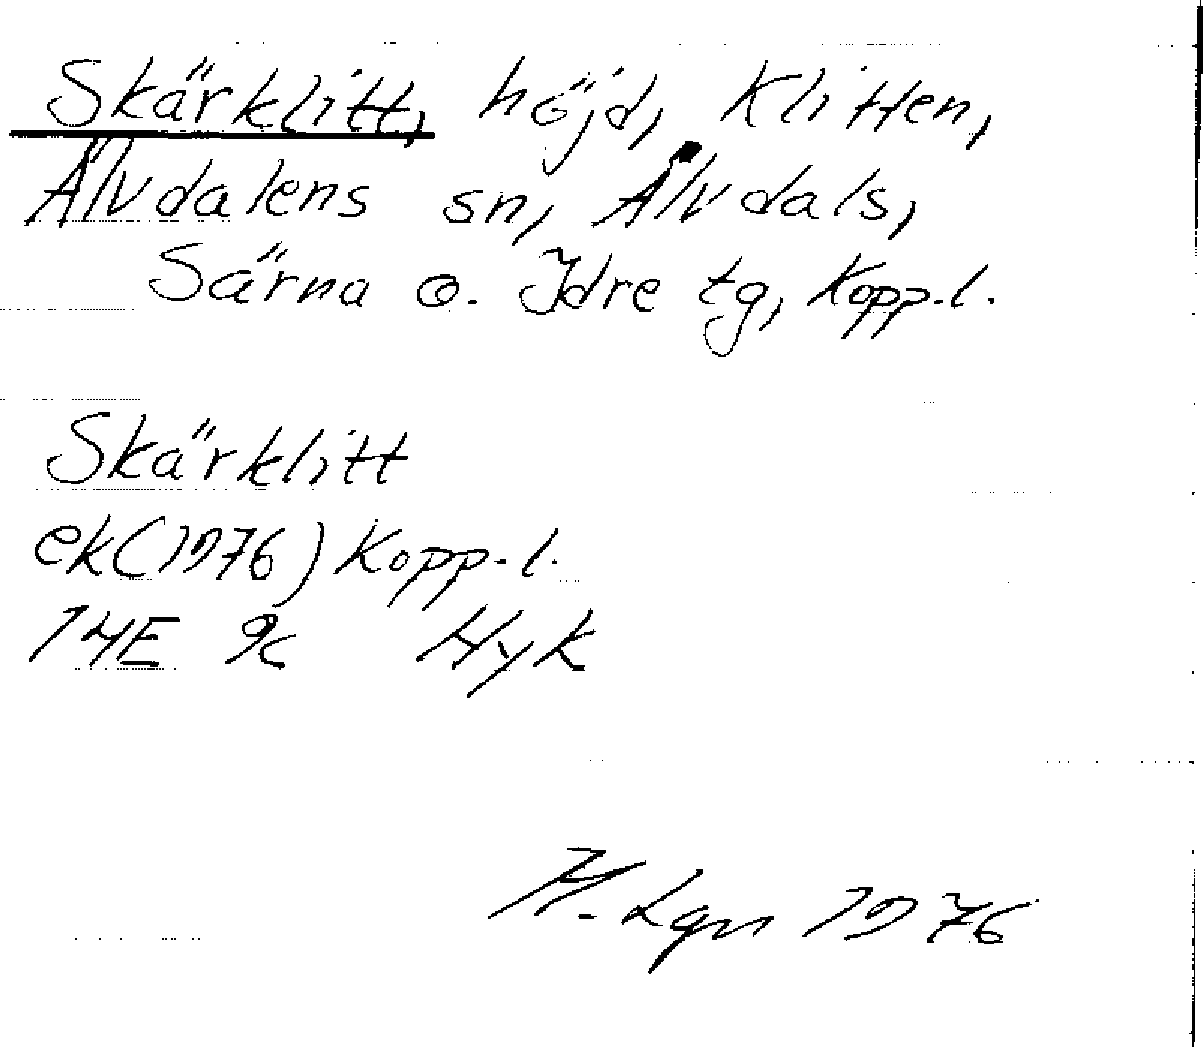 Skärklitt, höjd, Klitten,
Älvdalens sn, Älvdals,
Särna o. Idre tg, Kopp.l.
Skärklitt
ek (1976) Kopp.l.
14E 9c Hyk
H. Lgn 1976